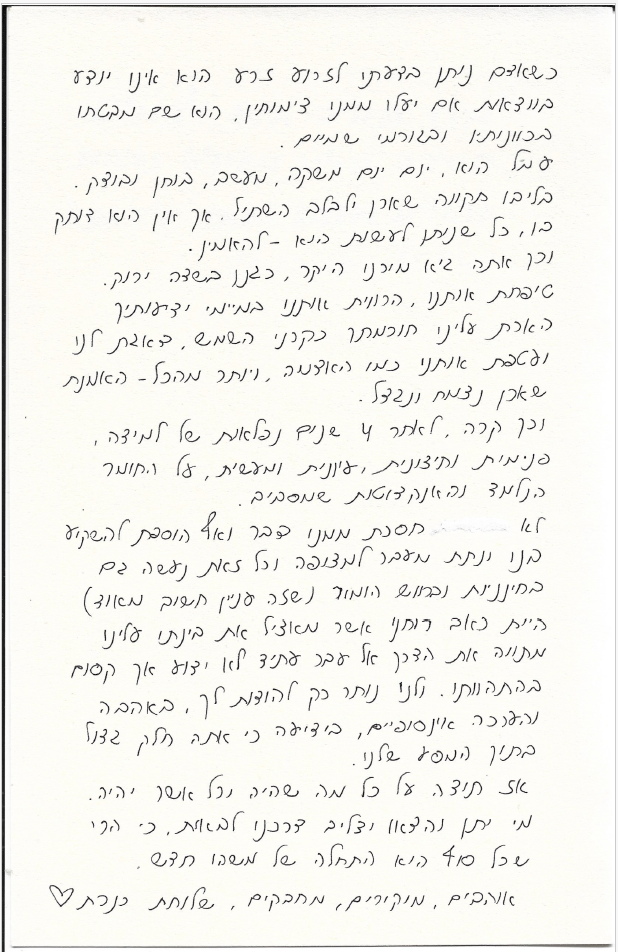 כשאדם ניתן בדעתו לזרוע זרע הוא אינו יודע
בוודאות אם יעלו ממנו צימותין, הוא שם מבטחו
בכוונותיו ובגורמי שמיים.
עמל הוא, יום יום משקה, מעשב, בוחן ובודק.
בליבו תקווה שאכן ילבלב השתיל. אך אין הוא דוחק
בו, כל שניתן לעשות הוא - להאמין.
וכך אתה גיא מורנו היקר, כגנן בשדה ירוק.
טיפחת אותנו, הרווית אותנו במימי ידיעותיך
הארת עלינו חוכמתך כקרני השמש, דאגת לנו
ועטפת אותנו כמו האדמה, ויותר מהכל - האמנת
שאכן נצמח ונגדל.
וכך קרה, לאחר 4 שנים נפלאות של למידה,
פנימית וחיצונית, עיונית ומעשית, על החומר
הנלמד והאנקדוטות שמסביב.
לא חסכת ממנו דבר ואף הוספת להשקיע
בנו ונתת מעבר למצופה וכל זאת נעשה גם
בחינניות ובחוש הומור (שזה עניין חשוב מאוד)
היית כאב רוחני אשר מאציל את בינתו עלינו
מתווה את הדרך אל עבר עתיד לא ידוע אך קסום
בהתהוותו. ולנו נותר רק להודות לך, באהבה
והערכה אינסופיים, בידיעה כי אתה חלק גדול
בתוך המסע שלנו.
אז תודה על כל מה שהיה וכל אשר יהיה.
מי יתן והצאן יצליב דרכנו לבאות, כי הרי
שכל סוף הוא התחלה של משהו חדש.
אוהבים, מוקירים, מחבקים, שלוחת כנרת ♡